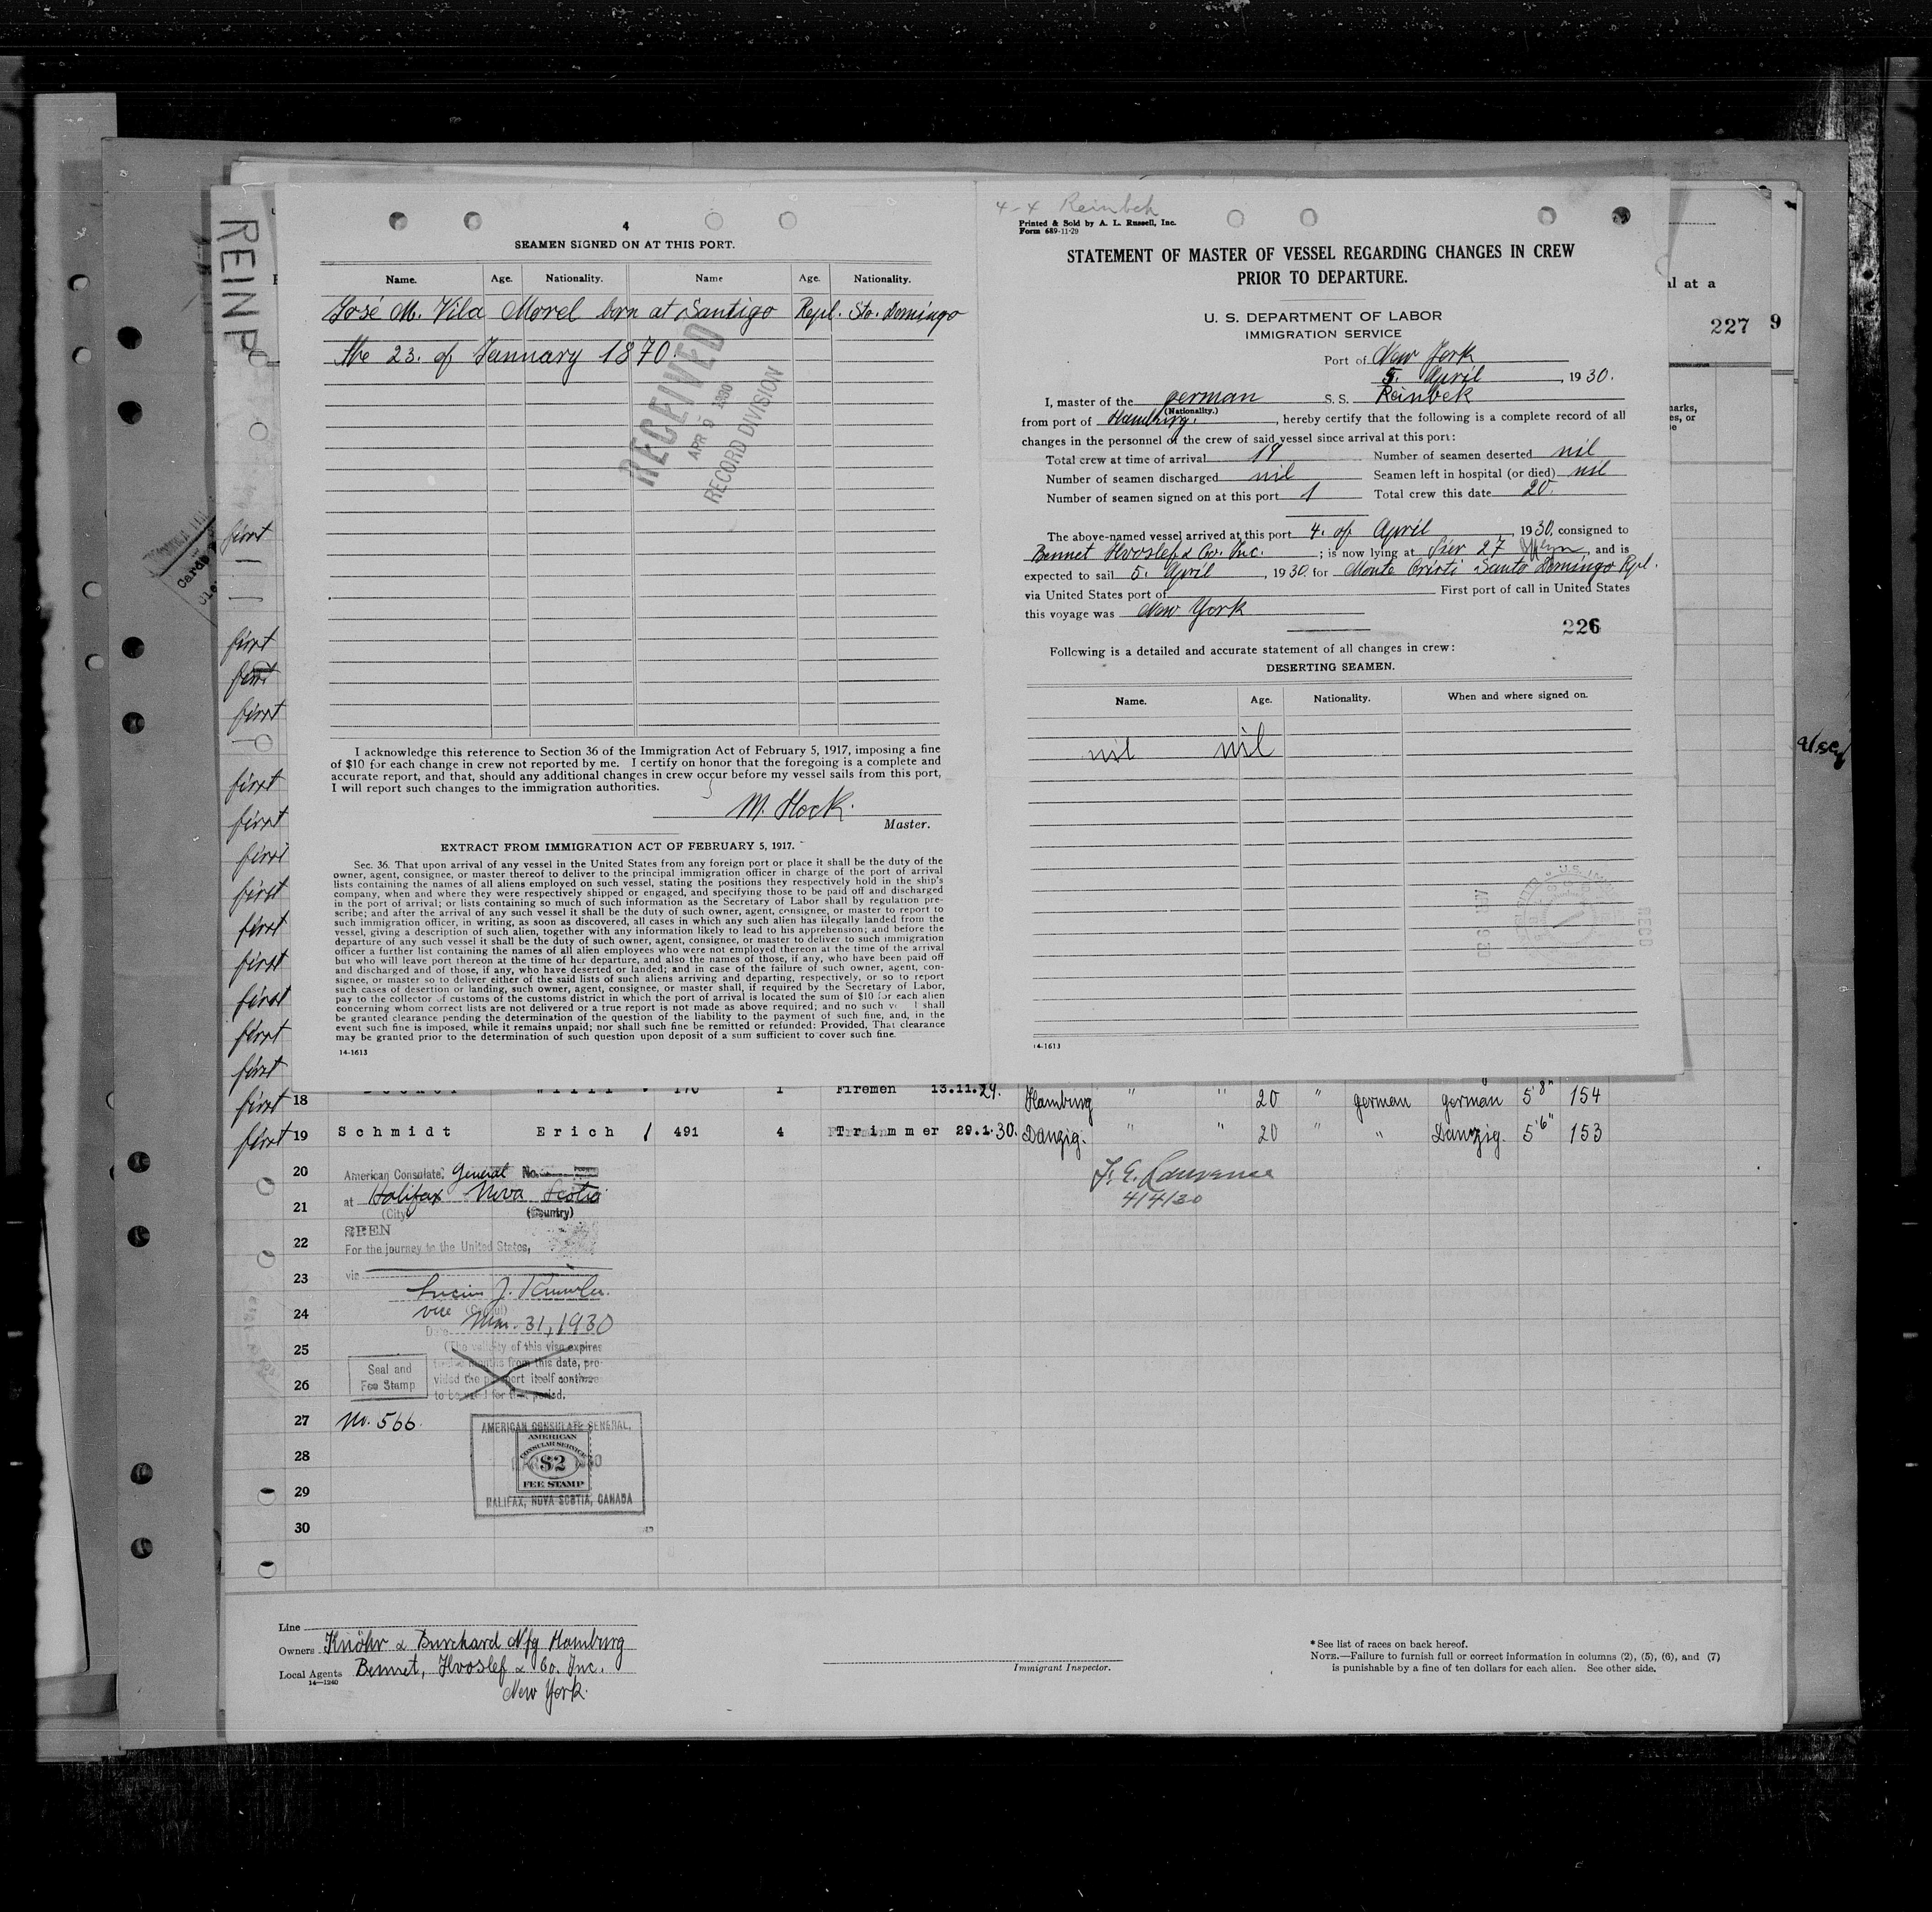 REINB
4
SEAMEN SIGNED ON AT THIS PORT.
Name. Age. Nationality. Name Age. Nationality.
José M. Vila Morel born at Santigo Repl. Sto. Domingo
the 23. of January 1870.
RECEIVED
APR 9 1930
RECORD DIVISION
I acknowledge this reference to Section 36 of the Immigration Act of February 5, 1917, imposing a fine
of $10 for each change in crew not reported by me. I certify on honor that the foregoing is a complete and
accurate report, and that, should any additional changes in crew occur before my vessel sails from this port,
I will report such changes to the immigration authorities.
M. Hock.
Master.
EXTRACT FROM IMMIGRATION ACT OF FEBRUARY 5, 1917.
Sec. 36. That upon arrival of any vessel in the United States from any foreign port or place it shall be the duty of the
owner, agent, consignee, or master thereof to deliver to the principal immigration officer in charge of the port of arrival
lists containing the names of all aliens employed on such vessel, stating the positions they respectively hold in the ship's
company, when and where they were respectively shipped or engaged, and specifying those to be paid off and discharged
in the port of arrival; or lists containing so much of such information as the Secretary of Labor shall by regulation pre-
scribe; and after the arrival of any such vessel it shall be the duty of such owner, agent, consignee, or master to report to
such immigration officer, in writing, as soon as discovered, all cases in which any such alien has illegally landed from the
vessel, giving a description of such alien, together with any information likely to lead to his apprehension; and before the
departure of any such vessel it shall be the duty of such owner, agent, consignee, or master to deliver to such immigration
officer a further list containing the names of all alien employees who were not employed thereon at the time of the arrival
but who will leave port thereon at the time of her departure, and also the names of those, if any, who have been paid off
and discharged and of those, if any, who have deserted or landed; and in case of the failure of such owner, agent, con-
signee, or master so to deliver either of the said lists of such aliens arriving and departing, respectively, or so to report
such cases of desertion or landing, such owner, agent, consignee, or master shall, if required by the Secretary of Labor,
pay to the collector of customs of the customs district in which the port of arrival is located the sum of $10 for each alien
concerning whom correct lists are not delivered or a true report is not made as above required; and no such v l shall
be granted clearance pending the determination of the question of the liability to the payment of such fine, and, in the
event such fine is imposed, while it remains unpaid; nor shall such fine be remitted or refunded: Provided, That clearance
may be granted prior to the determination of such question upon deposit of a sum sufficient to cover such fine.
14-1613
4-4 Reinbek
Printed & Sold by A. L. Russell, Inc.
Form 689-11-29
STATEMENT OF MASTER OF VESSEL REGARDING CHANGES IN CREW
PRIOR TO DEPARTURE.
U. S. DEPARTMENT OF LABOR
IMMIGRATION SERVICE
Port of New York
5. April, 1930.
I, master of the german S. S. Reinbek
(Nationality.)
from port of Hamburg., hereby certify that the following is a complete record of all
changes in the personnel of the crew of said vessel since arrival at this port:
Total crew at time of arrival 19 Number of seamen deserted nil
Number of seamen discharged nil Seamen left in hospital (or died) nil
Number of seamen signed on at this port 1 Total crew this date 20.
The above-named vessel arrived at this port 4. of April, 1930, consigned to
Bennet Hvoslef & Co. Inc.; is now lying at Pier 27 Bklyn, and is
expected to sail 5. April, 1930 for Monte Cristi Santo Domingo Rpl.
via United States port of First port of call in United States
this voyage was New York
226
Following is a detailed and accurate statement of all changes in crew:
DESERTING SEAMEN.
Name. Age. Nationality. When and where signed on.
nil nil
REC'D
14-1613
al at a
227 9
first
first
first
first
first
first
first
first
first
first
first
first
first
first 18 Firemen 13.11.29. Hamburg " " 20 " german german 5'8" 154
first 19 Schmidt Erich 491 4 Trimmer 29.1.30. Danzig. " " 20 " " Danzig. 5'6" 153
20
21
22
23
24
25
26
27
28
29
30
American Consulate General No.
at Halifax Nova Scotia
(City) (Country)
SEEN
For the journey to the United States,
via
vice (Consul)
Date Mar. 31, 1930
(The validity of this visa expires
twelve months from this date, pro-
vided the passport itself continues
to be valid for that period.
Seal and
Fee Stamp
No. 566.
AMERICAN CONSULATE GENERAL,
AMERICAN
CONSULAR SERVICE
$2
FEE STAMP
HALIFAX, NOVA SCOTIA, CANADA
4/4/30
Line
Owners Knöhr & Burchard Nfg Hamburg
Local Agents Bennet, Hvoslef & Co. Inc.
14-1240
New York.
Immigrant Inspector.
* See list of races on back hereof.
NOTE.—Failure to furnish full or correct information in columns (2), (5), (6), and (7)
is punishable by a fine of ten dollars for each alien. See other side.